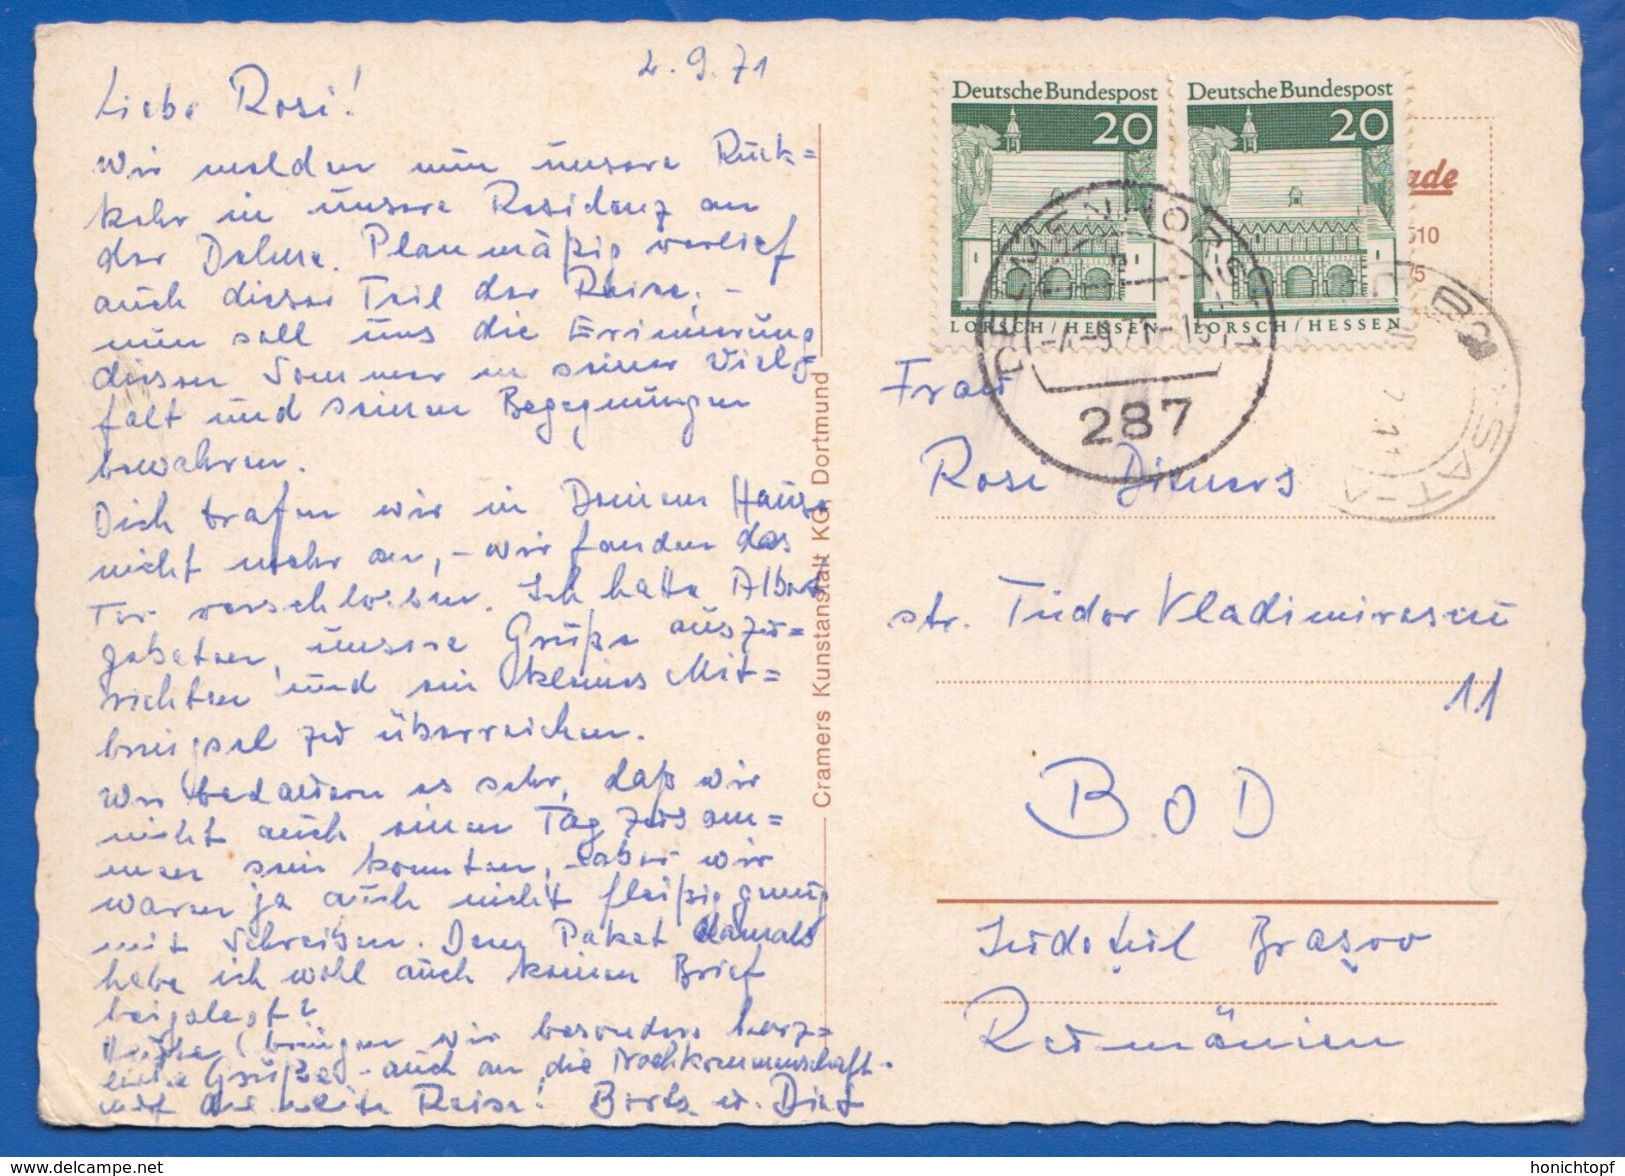 2.9.71
Liebe Rosi!
Wir melden nun unsere Rück=
kehr in unsere Residenz an
der Delme. Planmäßig verlief
auch dieser Teil der Reise, -
nun soll uns die Erinnerung
diesen Sommer in seiner Viel-
falt und seinen Begegnungen
bewahren.
Dich trafen wir in Deinem Hause
nicht mehr an, - wir fanden das
Tor verschlossen. Ich hatte Albert
gebeten, unsere Grüße auszu=
richten und ein kleines Mit=
bringsel zu überreichen.
Wir bedauern es sehr, daß wir
nicht auch einen Tag zusam=
men sein konnten, - aber wir
waren ja auch nicht fleißig genug
mit Schreiben. Dem Paket damals
habe ich wohl auch keinen Brief
beigelegt?
Heute bringen wir besonders herz=
liche Grüße - auch an die Nachkommenschaft.
auf die weite Reise! u.
Cramers Kunstanstalt KG, Dortmund
Deutsche Bundespost
20
LORSCH/HESSEN
Deutsche Bundespost
20
LORSCH/HESSEN
ade
510
75
DELMENHORST 1
287
BOD
SAT
Frau
Rosi
str. Tudor Vladimirescu
11
BOD
Brașov
Rumänien
honichtopf
www.delcampe.net